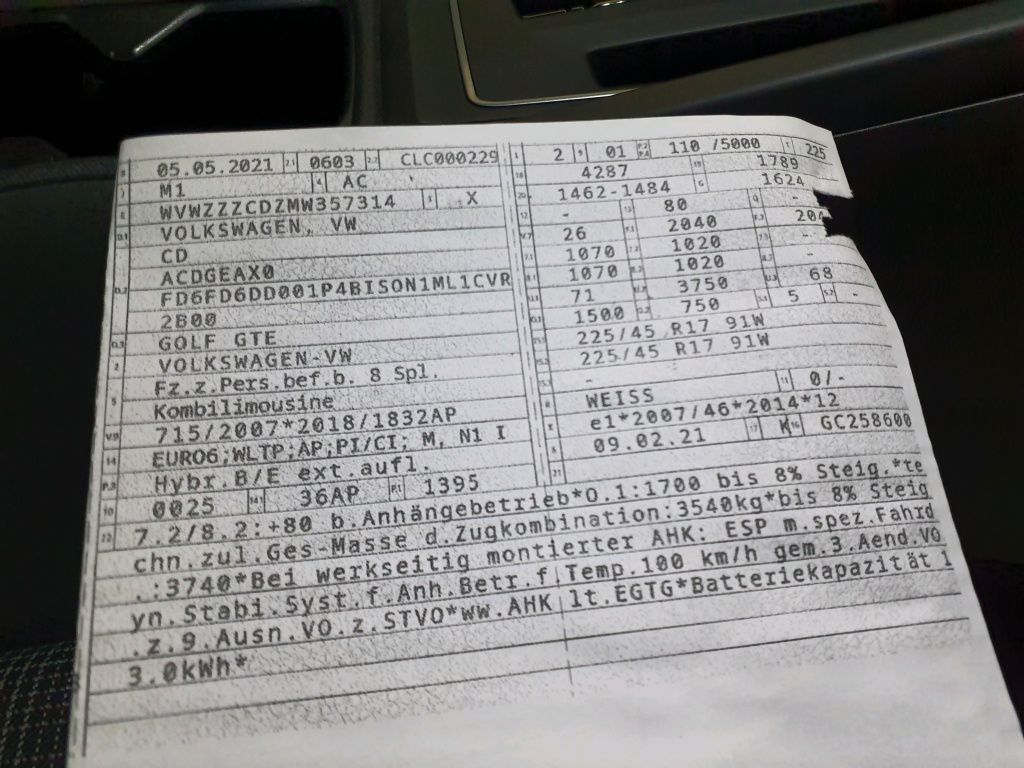 B 05.05.2021 2.1 0603 2.2 CLC000229
J M1 4 AC
E WVWZZZCDZMW357314 3 X
D.1 VOLKSWAGEN, VW
CD
D.2 ACDGEAX0
FD6FD6DD001P4BISON1ML1CVR
2B00
D.3 GOLF GTE
2 VOLKSWAGEN-VW
5 Fz.z.Pers.bef.b. 8 Spl.
Kombilimousine
V.9 715/2007*2018/1832AP
14 EURO6;WLTP;AP;PI/CI; M, N1 I
P.3 Hybr.B/E ext.aufl.
10 0025 14.1 36AP P.1 1395
L 2 9 01 P.2 P.4 110 /5000 T 225
18 4287 19 1789
20 1462-1484 G 1624
12 - 13 80 Q -
V.7 26 F.1 2040 F.2 204
7.1 1070 7.2 1020 7.3 -
8.1 1070 8.2 1020 8.3 -
U.1 71 U.2 3750 U.3 68
O.1 1500 O.2 750 S.1 5 S.2 -
15.1 225/45 R17 91W
15.2 225/45 R17 91W
15.3 -
R WEISS 11 0/-
K e1*2007/46*2014*12
6 09.02.21 17 K 16 GC258600
21
22 7.2/8.2:+80 b.Anhängebetrieb*O.1:1700 bis 8% Steig.*te
chn.zul.Ges-Masse d.Zugkombination:3540kg*bis 8% Steig
.:3740*Bei werkseitig montierter AHK: ESP m.spez.Fahrd
yn.Stabi.Syst.f.Anh.Betr.f.Temp.100 km/h gem.3.Aend.VO
.z.9.Ausn.VO.z.STVO*ww.AHK lt.EGTG*Batteriekapazität 1
3.0kWh*